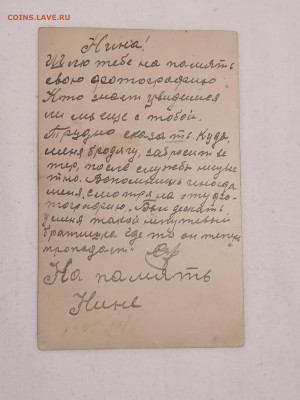 COINS.LAV.RU
Нина!
Шлю тебе на память
свою фотографию
Кто знает увидимся
ли мы еще с тобой.
Трудно сказать. Куда,
меня бродягу, забросит ве
тер, после службы неизве
тно. Вспомнишь иногда
меня, смотря на эту фо-
тографию. Был дескать
у меня такой непутевый
братишка где то он теперь
пропадает"
На память
Нине